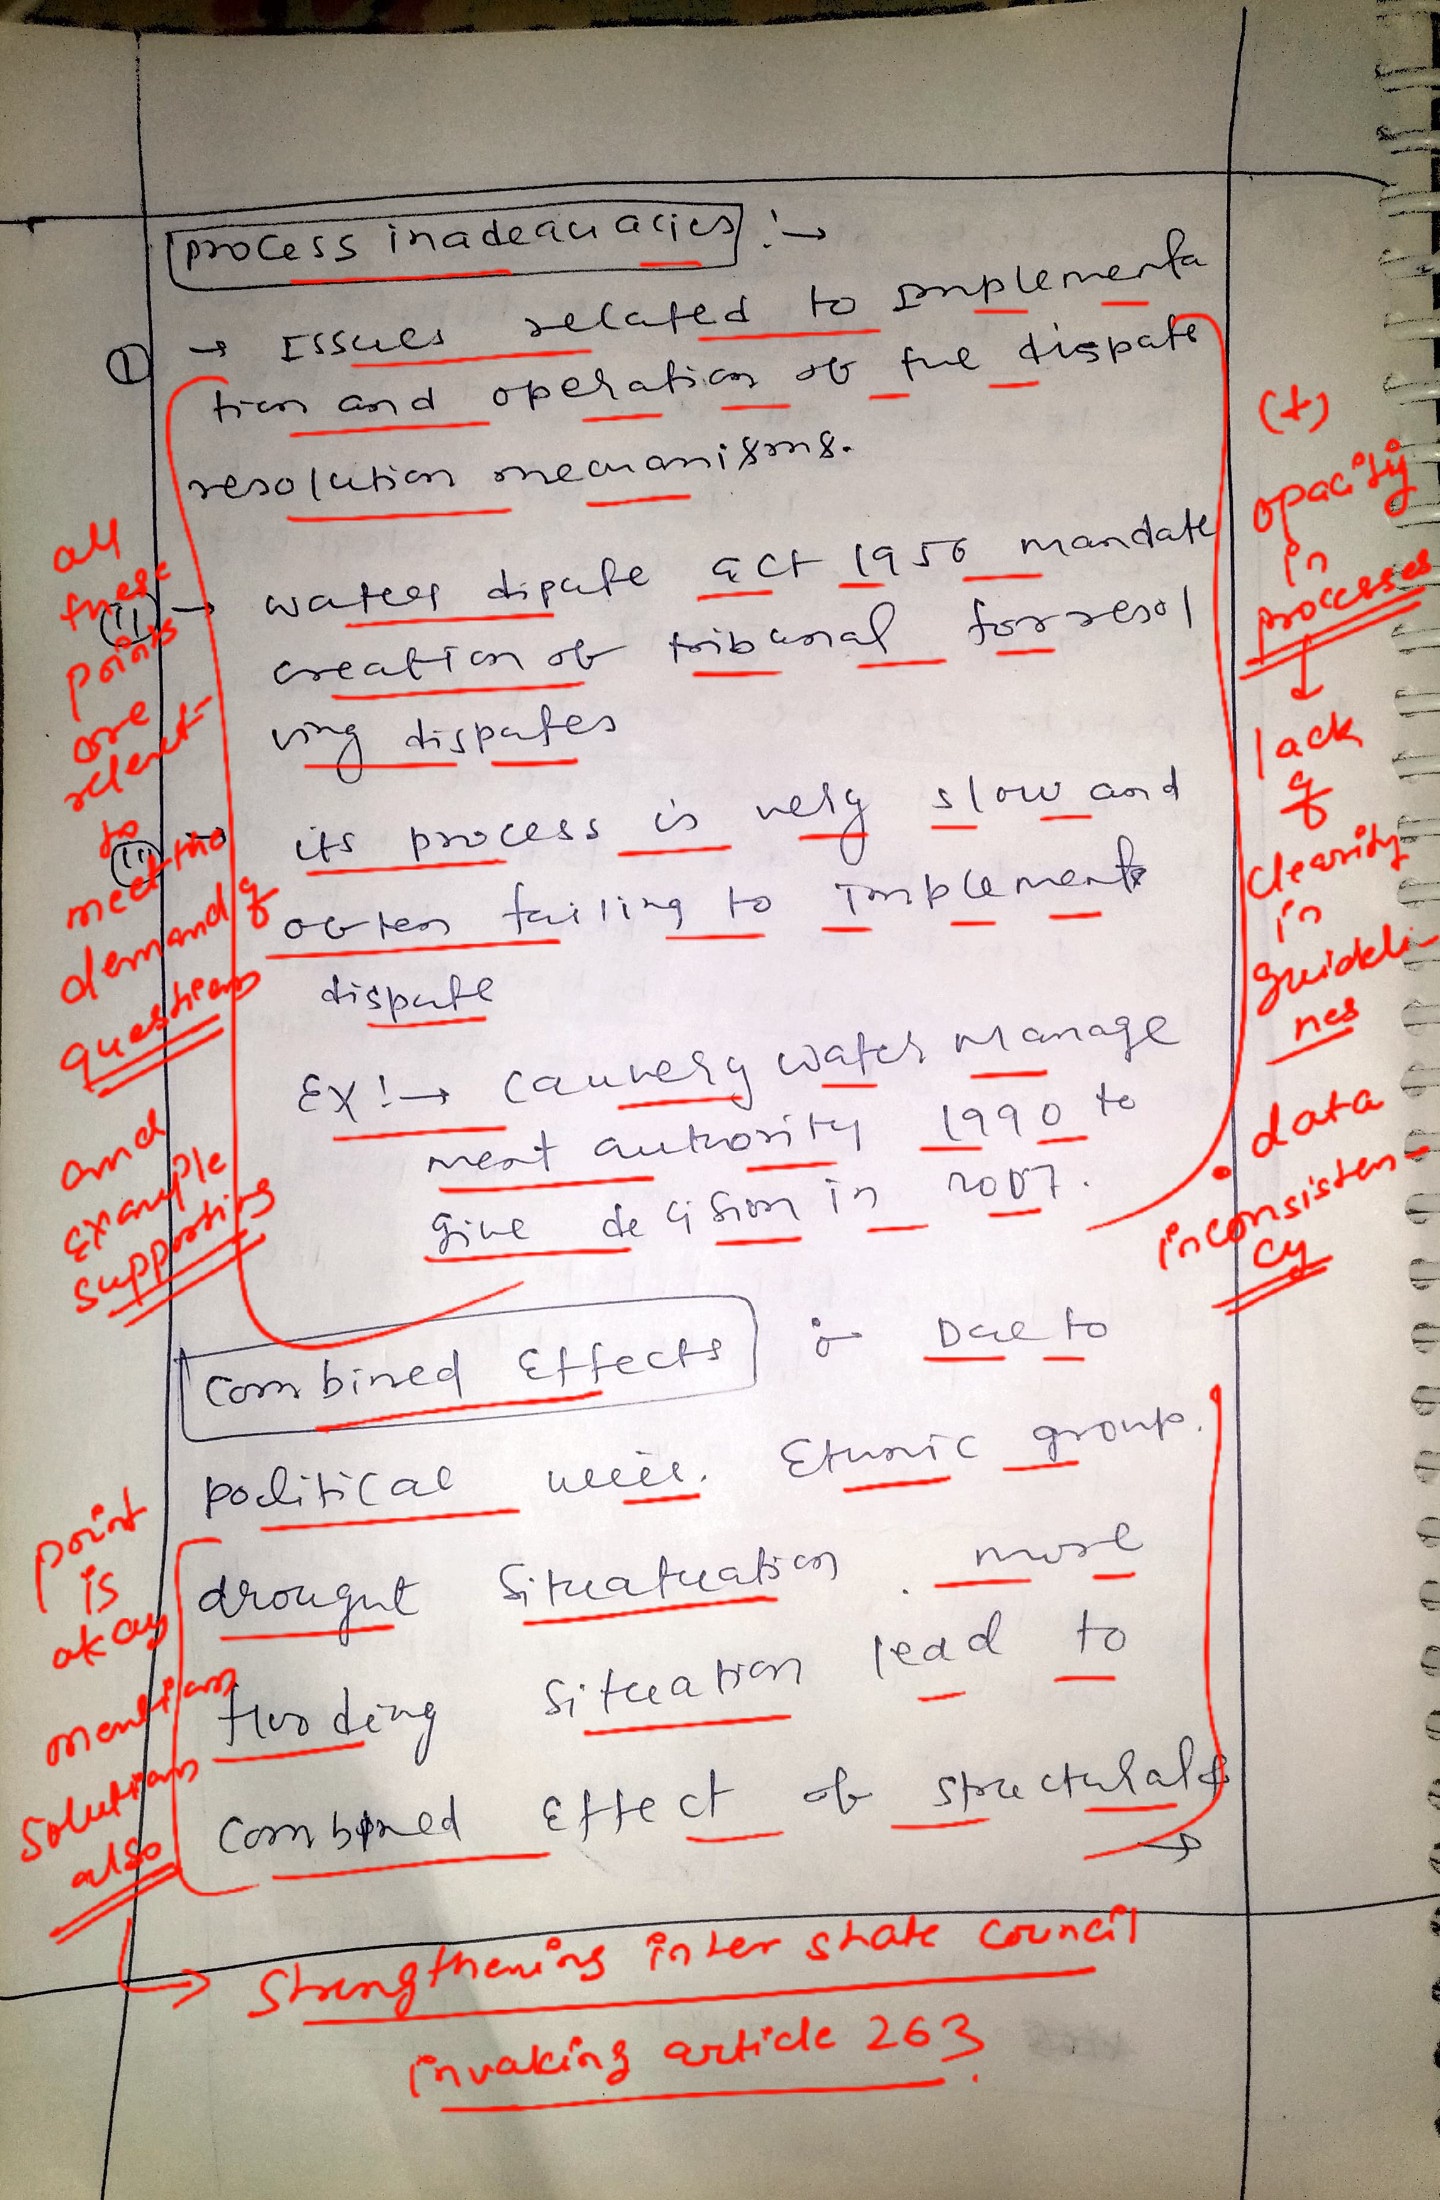 process inadeauacies :→
① → Issues related to Implementa
tion and operation of the dispate
resolution mechanisms.
(ii) → waters dipute act 1956 mandate
creation of tribunal for resol
ving disputes
(iii) → its process is very slow and
often failing to Implement
dispute
EX :→ Cauvery water Manage
ment authority 1990 to
give decision in 2007.
Combined Effects :- Due to
political . Ethnic group.
drought Situatuation . more
flooding Situation lead to
Combined Effect of structural &
→
all
these
points
are
relenct-
to
meet the
demand of
question
and
example
supporting
(+)
opacity
in
processes
↓
lack
of
clearity
in
guideli-
nes
• data
inconsisten-
cy
point
is
okay
mention
solution
also
→ Strengthening inter state council
invaking article 263.